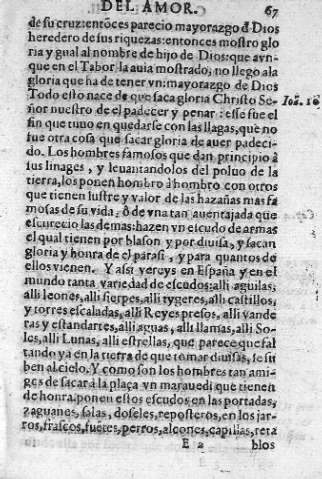 DEL AMOR. 67
de su cruz: entõces parecio mayorazgo d̃ Dios
heredero de sus riquezas: entonces mostro glo
ria y gual al nombre de hijo de Dios: que aun-
que en el Tabor la auia mostrado, no llego a la
gloria que ha de tener vn: mayorazgo de Dios
Todo esto nace de que saca gloria Christo Se-
ñor nuestro de el padecer y penar: esse fue el
fin que tuuo en quedarse con las llagas, que no
fue otra cosa que sacar gloria de auer padeci-
do. Los hombres famosos que dan principio à
sus linages, y leuantandolos del poluo de la
tierra, los ponen hombro à hombro con otros
que tienen lustre y valor de las hazañas mas fa
mosas de su vida, ò de vna tan auentajada que
escurecio las demas: hazen vn escudo de armas
el qual tienen por blason y por diuisa, y sacan
gloria y honra de el para si, y para quantos de
ellos vienen. Y assi vereys en España y en el
mundo tanta variedad de escudos: alli aguilas;
alli leones, alli sierpes, alli tygeres, alli castillos,
y torres escaladas, alli Reyes presos, alli vande
ras y estandartes, alli aguas, alli llamas, alli So-
les, alli Lunas, alli estrellas, que parece que fal
tando ya en la tierra de que tomar diuisas, se su
ben al cielo. Y como son los hombres tan ami-
ges de sacar à la plaça vn marauedi que tienen
de honra: ponen estos escudos en las portadas,
zaguanes, salas, doseles, reposteros, en los jar-
ros, frascos, fuẽtes, perros, alcones, capillas, reta
E 2 blos
Ioã. 16